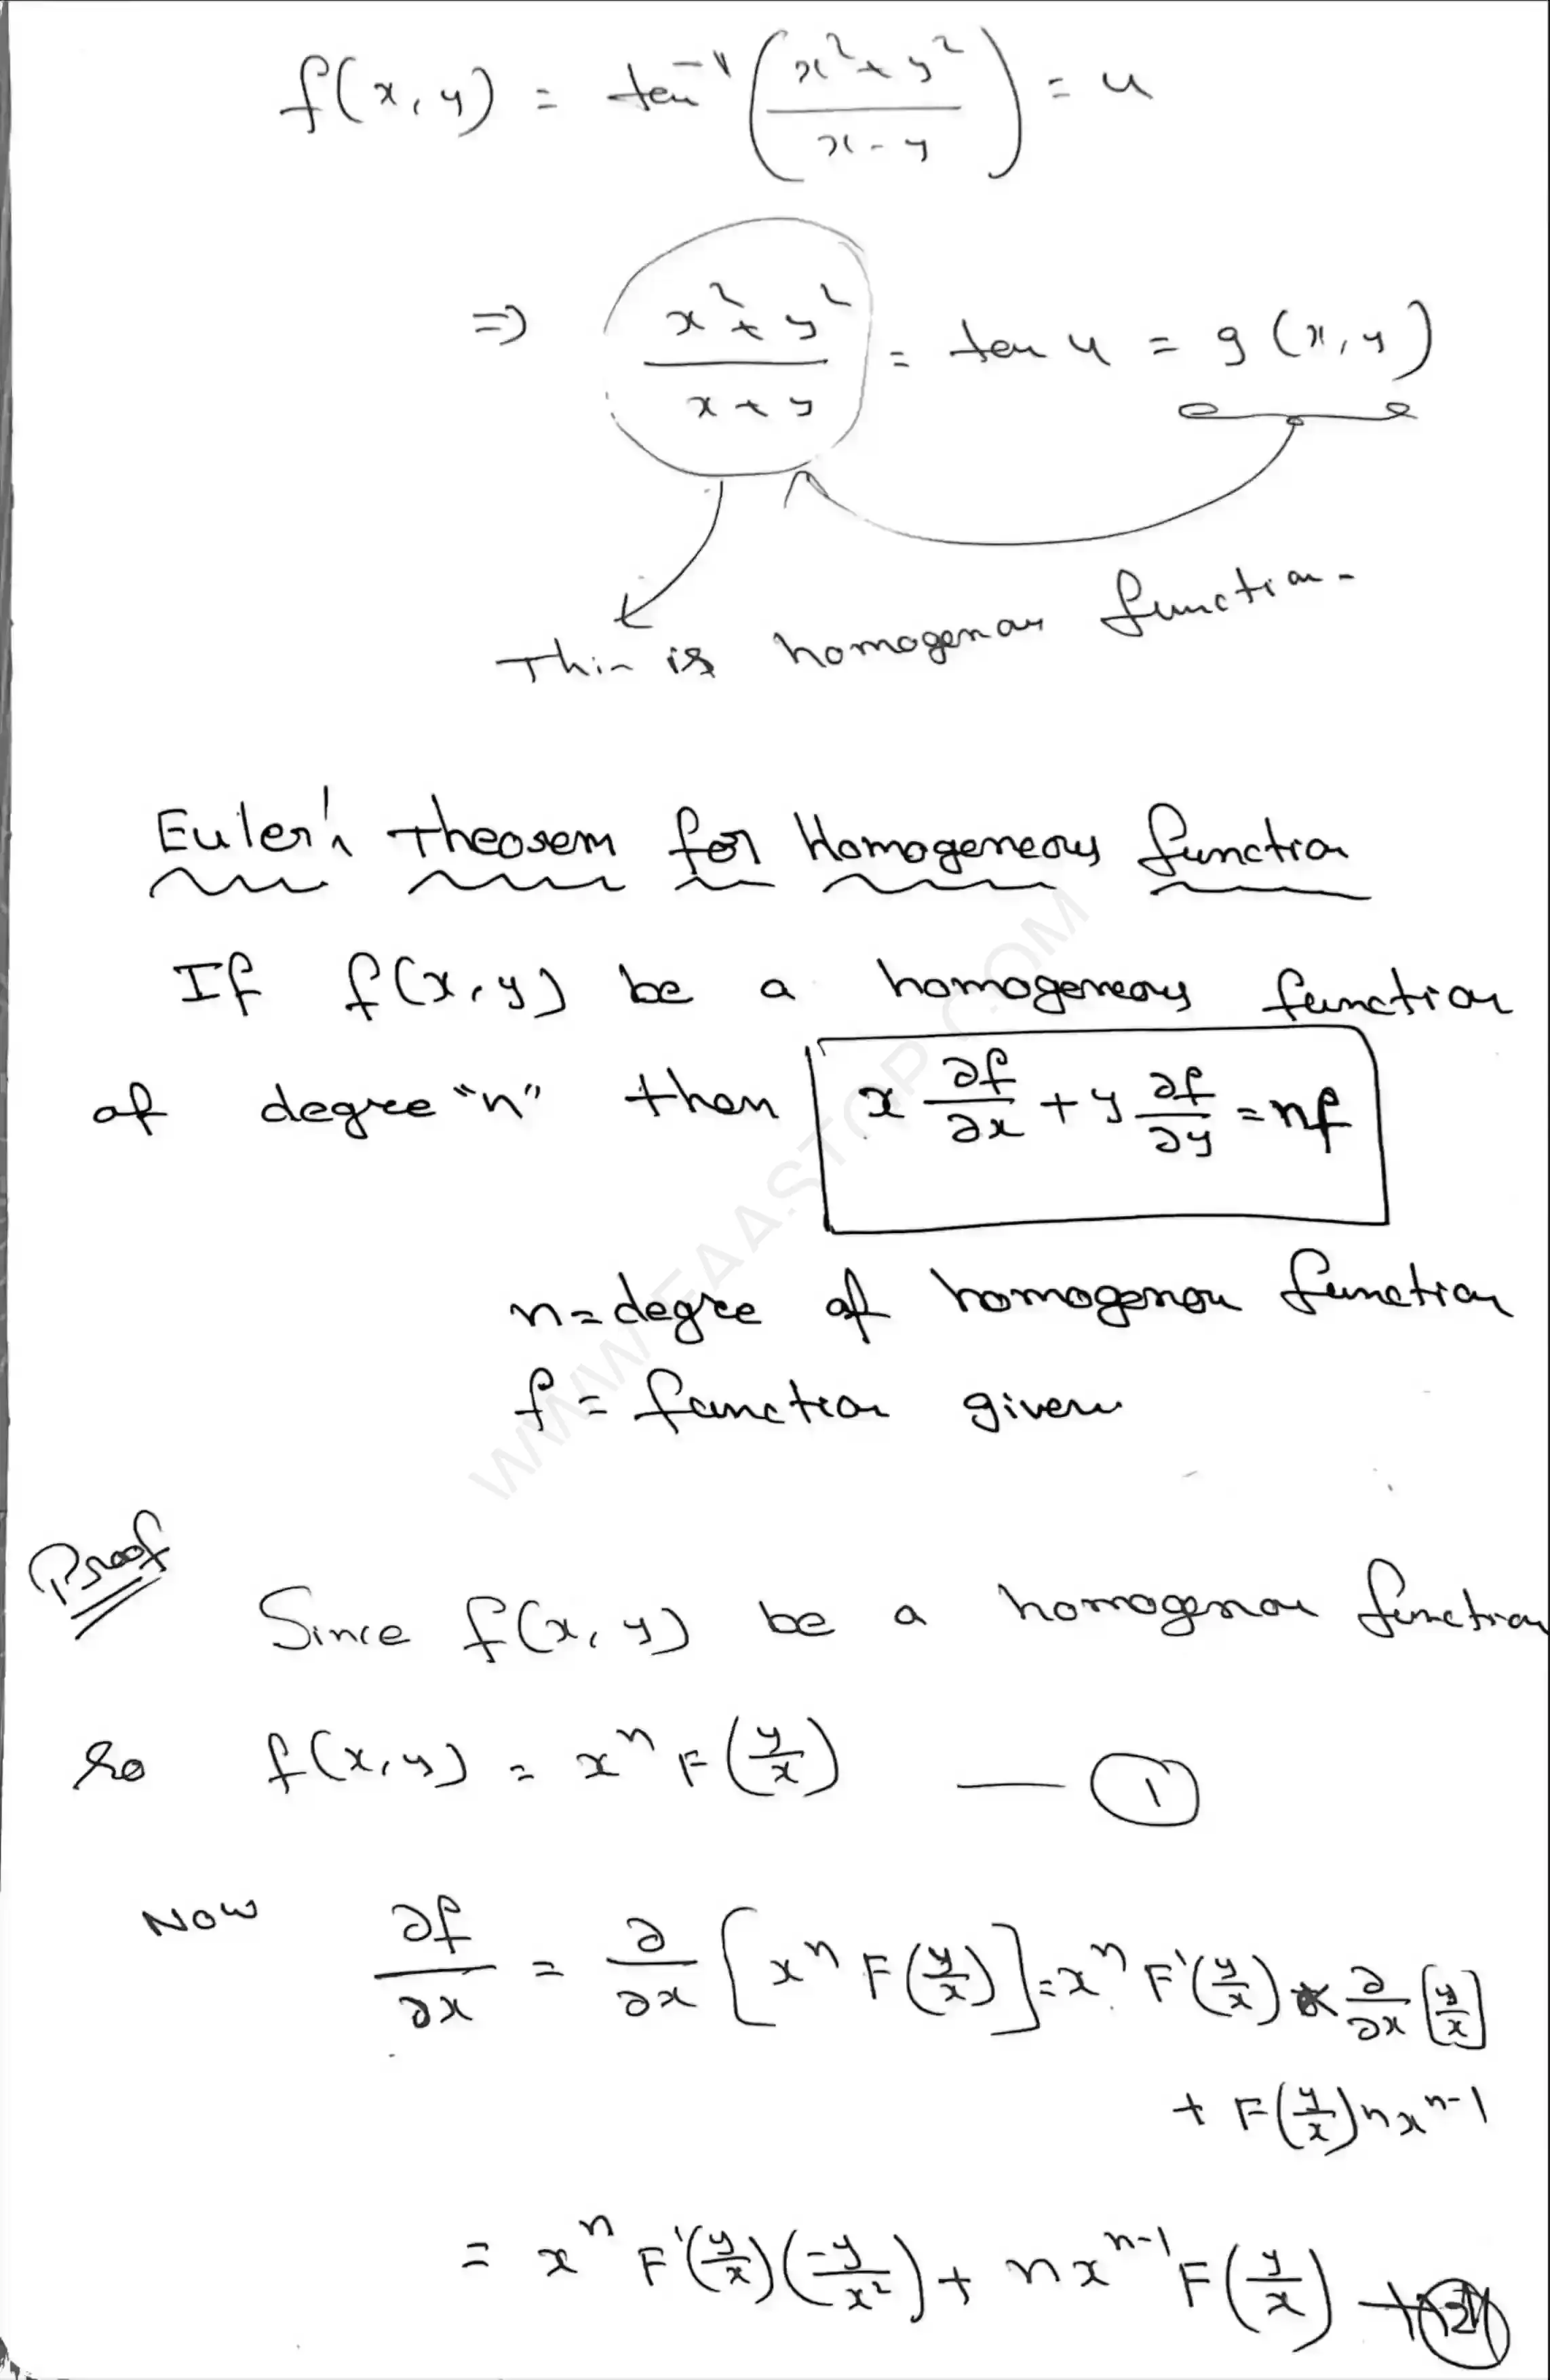 f(x,y) = tan⁻¹((x²+y²)/(x-y)) = u
⇒ (x²+y²)/(x+y) = tan u = g(x,y)
This is homogenous function.
Euler's Theorem for Homogeneous function
If f(x,y) be a homogeneous function
of degree "n" then x ∂f/∂x + y ∂f/∂y = nf
n = degree of homogenou function
f = function given
Proof
Since f(x,y) be a homogenou function
so f(x,y) = xⁿ F(y/x) — ①
Now ∂f/∂x = ∂/∂x [xⁿ F(y/x)] = xⁿ F'(y/x) * ∂/∂x [y/x]
+ F(y/x) n xⁿ⁻¹
= xⁿ F'(y/x) (-y/x²) + n xⁿ⁻¹ F(y/x) — ②
WWW.FAASTOP.COM